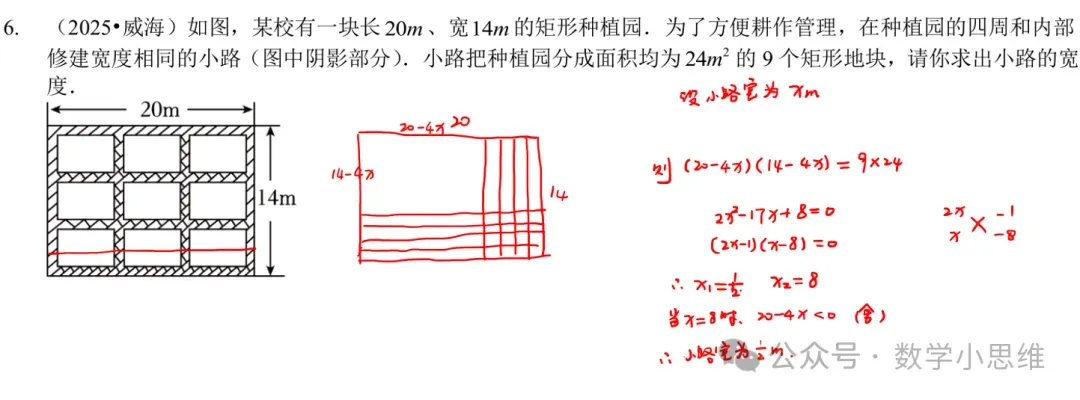 6. (2025•威海)如图，某校有一块长 20m、宽14m 的矩形种植园．为了方便耕作管理，在种植园的四周和内部
修建宽度相同的小路（图中阴影部分）．小路把种植园分成面积均为 24m² 的 9 个矩形地块，请你求出小路的宽
度．
设小路宽为 xm
20m
14m
20-4x 20
14-4x
14
则 (20-4x)(14-4x)=9×24
2x²-17x+8=0
(2x-1)(x-8)=0
2x -1
x -8
∴ x₁=1/2 x₂=8
当x=8时、20-4x<0 (舍)
∴ 小路宽为1/2m.
公众号 · 数学小思维